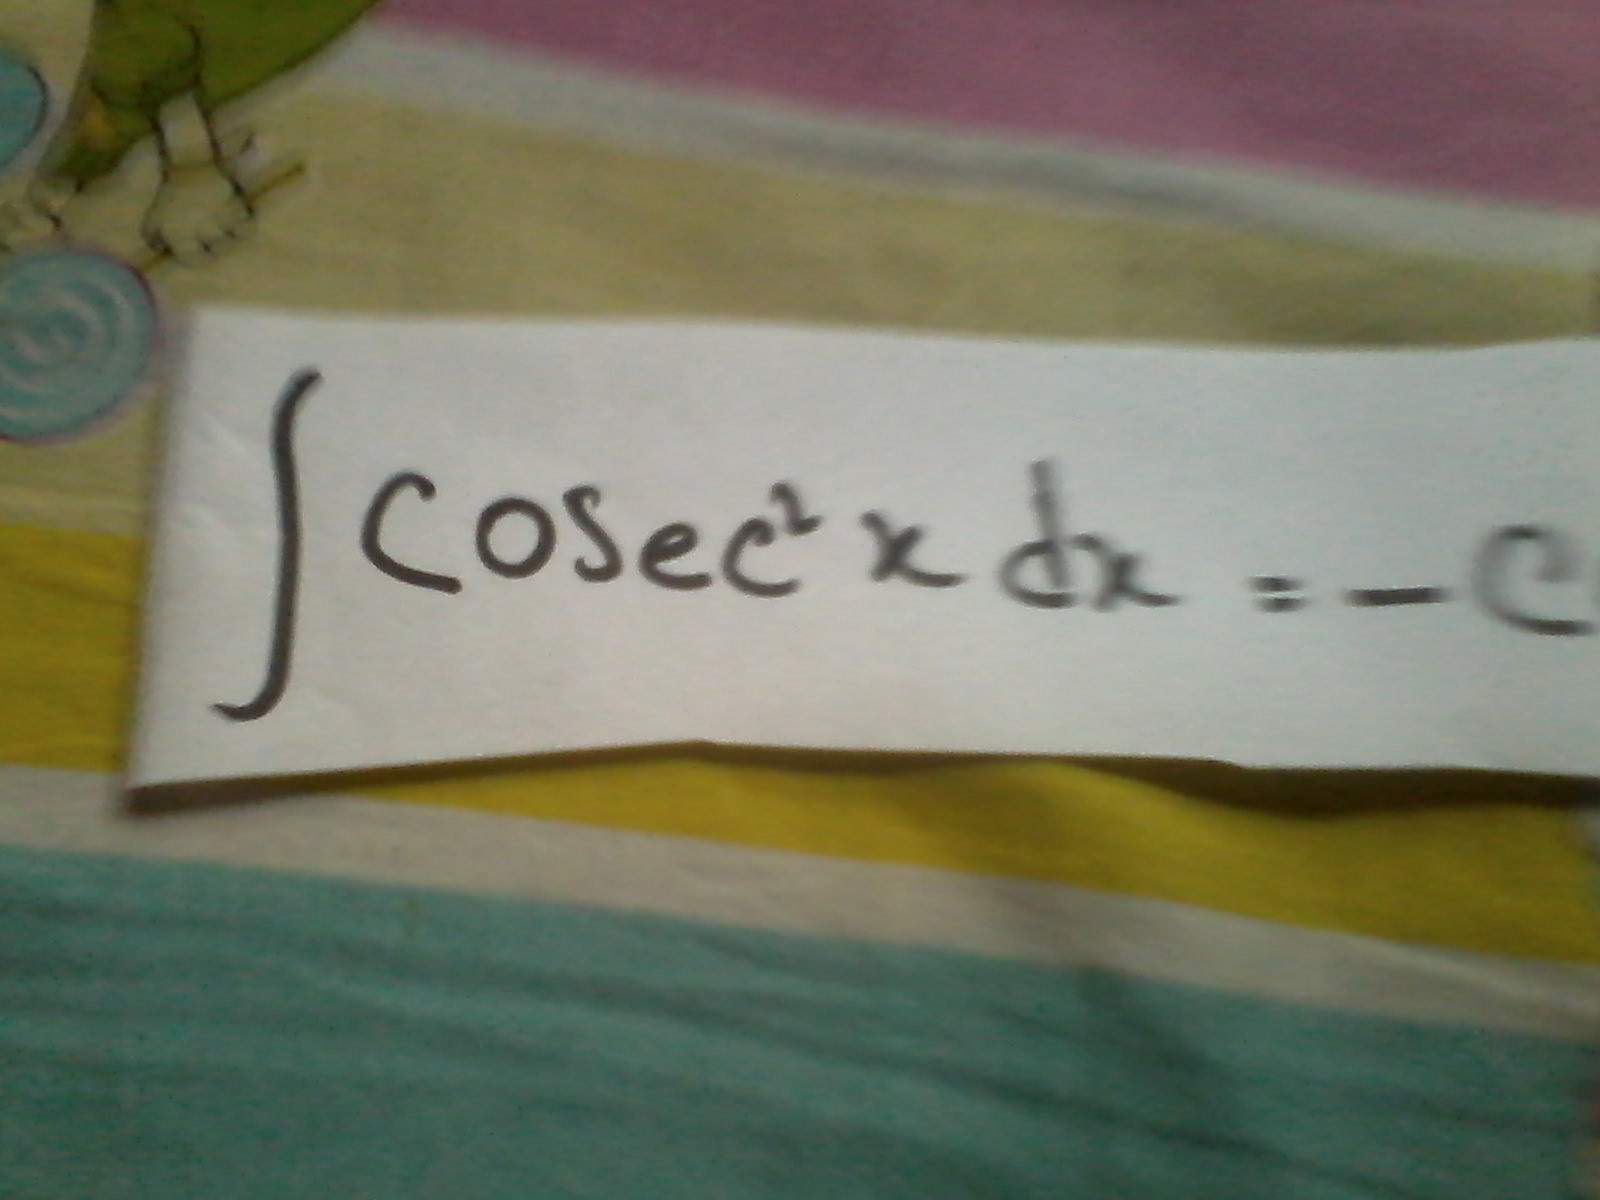 ∫ cosec² x dx = - c